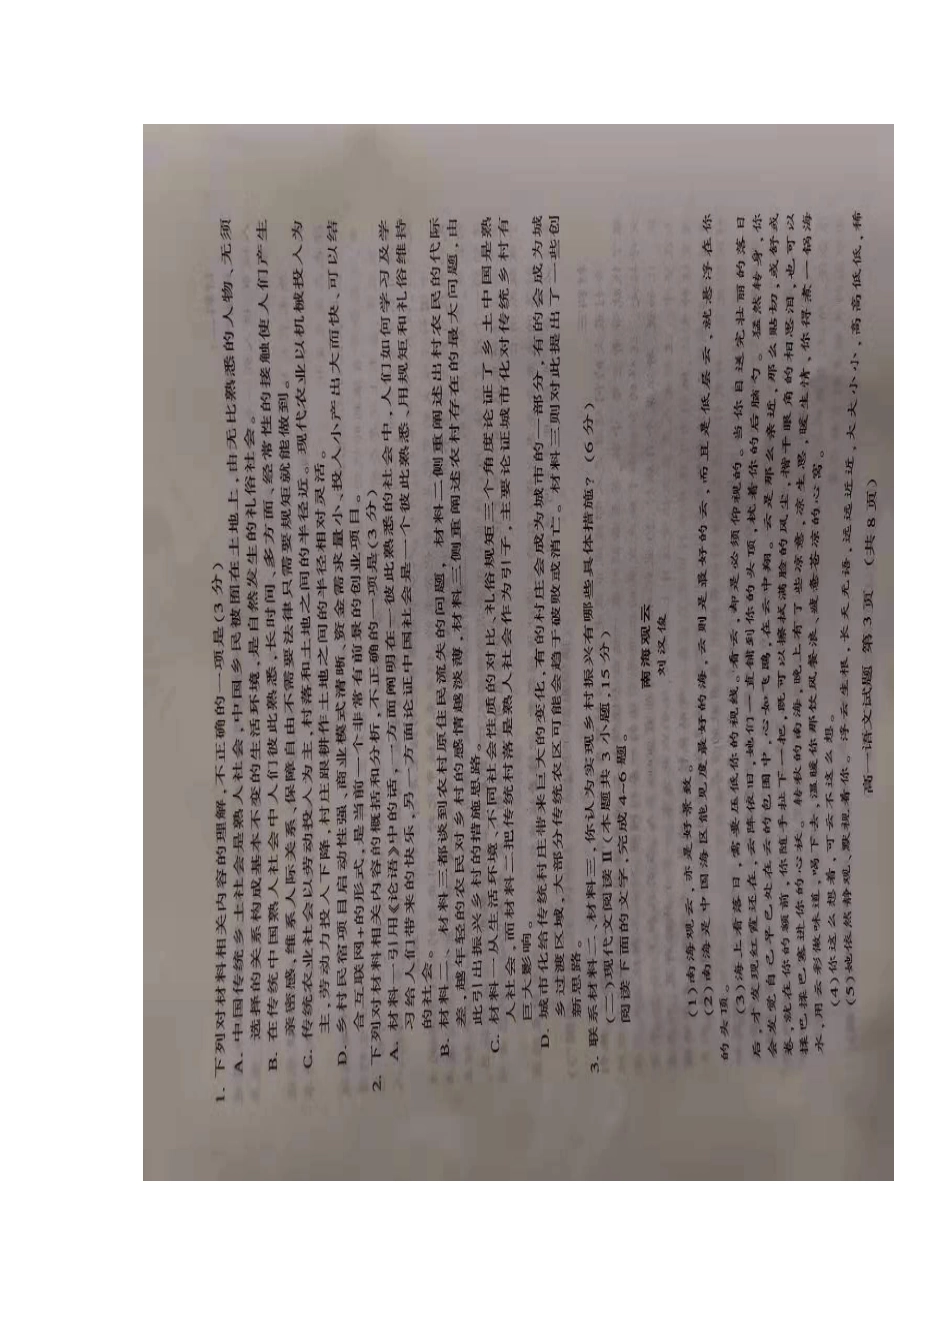 1. 下列对材料相关内容的理解,不正确的一项是(3 分)
A. 中国传统乡土社会是熟人社会,中国乡民被囿在土地上,由无比熟悉的人物、无须
选择的关系构成基本不变的生活环境,是自然发生的礼俗社会。
B. 在传统中国熟人社会中人们彼此熟悉,长时间、多方面、经常性的接触使人们产生
亲密感,维系人际关系、保障自由不需要法律只需要规矩就能做到。
C. 传统农业社会以劳动投入为主,村落和土地之间的半径近。现代农业以机械投入为
主,劳动力投入下降,村庄跟耕作土地之间的半径相对灵活。
D. 乡村民宿项目启动性强、商业模式清晰、资金需求量小、投入小产出大而快、可以结
合互联网+的形式,是当前一个非常有前景的创业项目。
2. 下列对材料相关内容的概括和分析,不正确的一项是(3 分)
A. 材料一引用《论语》中的话,一方面阐明在一彼此熟悉的社会中,人们如何学习及学
习给人们带来的快乐,另一方面论证中国社会是一个彼此熟悉、用规矩和礼俗维持
的社会。
B. 材料二、材料三都谈到农村原住民流失的问题,材料二侧重阐述出村农民的代际
差,越年轻的农民对乡村的感情越淡薄,材料三侧重阐述农村存在的最大问题,由
此引出振兴乡村的措施思路。
C. 材料一从生活环境、不同社会性质的对比、礼俗规矩三个角度论证了乡土中国是熟
人社会,而材料二把传统村落是熟人社会作为引子,主要论证城市化对传统乡村有
巨大影响。
D. 城市化给传统村庄带来巨大的变化,有的村庄会成为城市的一部分,有的会成为城
乡过渡区域,大部分传统农区可能会趋于破败或消亡。材料三则对此提出了一些创
新思路。
3. 联系材料二、材料三,你认为实现乡村振兴有哪些具体措施?(6 分)
(二)现代文阅读Ⅱ(本题共 3 小题,15 分)
阅读下面的文字,完成 4~6 题。
南海观云
刘汉俊
(1)南海观云,亦是好景致。
(2)南海是中国海区能见度最好的海,云则是最好的云,而且是低层云,就悬浮在你
的头顶。
(3)海上看落日,需要压低你的视线。看云,却是必须仰视的。当你目送完壮丽的落日
后,才发现红霞还在,云阵依旧,她们一直铺到你的头顶,枕着你的后脑勺。猛然转身,你
会发觉自己早已处在云的包围中,心如飞鸥,在云中翔。云是那么亲近,那么贴切,或舒或
卷,就在你的额前,你随手扯下一把,既可以擦拭满脸的风尘,揩干眼角的相思泪,也可以
揉巴揉巴塞进你的心扉。转秋的南海,晚上有了些凉意,凉生思,暖生情,你得煮一锅海
水,用云彩做味道,喝下去,温暖你那饮风餐浪、疲惫苍凉的心窝。
(4)你这么想着,可云不这么想。
(5)她依然静观、默视着你。浮云生根,长天无语,远远近近,大大小小,高高低低,稀
高一语文试题 第 3 页 (共 8 页)